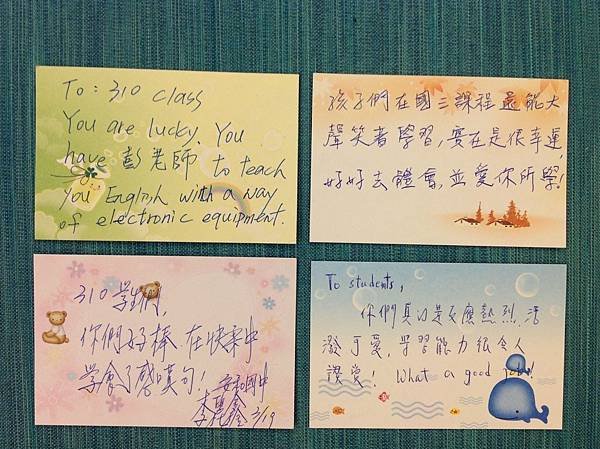 To: 310 class
You are lucky. You
have 彭老師 to teach
you English with a way
of electronic equipment.
孩子們在國三課程還能大
聲笑著學習,實在是很幸運,
好好去體會,並愛你所學!
310 學生們,
你們好棒 在快樂中
學會了感嘆句!
安和國中
李 3/19
To students,
你們真的是反應熱烈、活
潑可愛,學習能力很令人
讚賞! What a good job!!